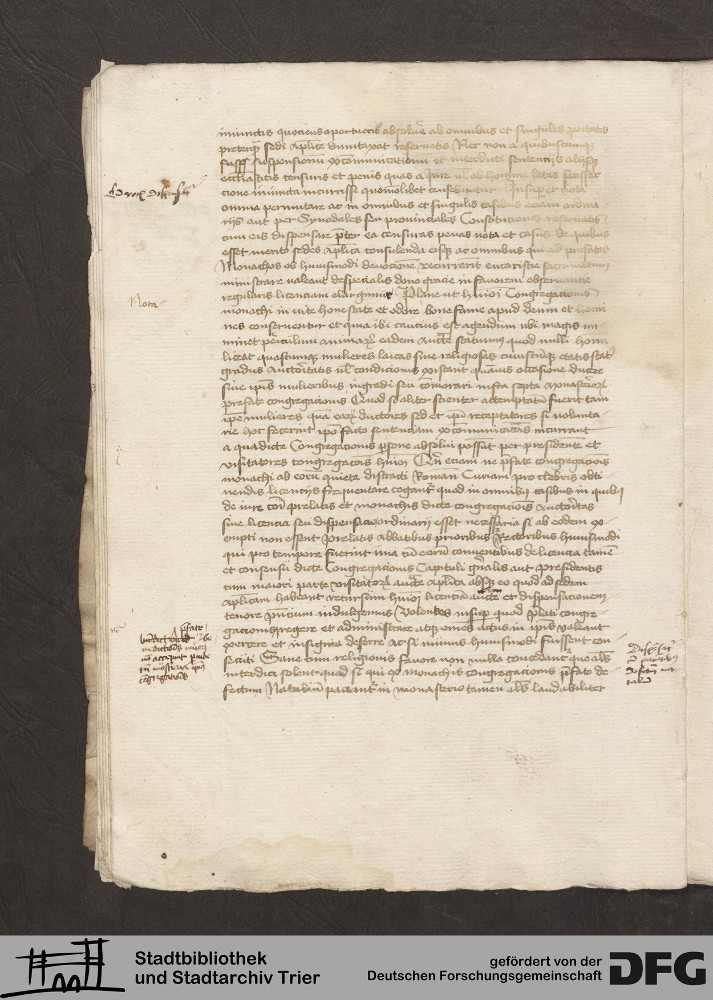 iniunctis quociens oportuerit absolvere ab omnibus et singulis peccatis
preterquam sedi aplice dumtaxat reservatis Nec non a quibuscumque
suspensionum excommunicationum et interdicti sententiis aliisque
ecclesiasticis censuris et penis quas a Jure vel ab homine latas
cione iniuncta incurrisse quomolibet censebuntur Insuper et vota
omnia permutare ac in omnibus et singulis casibus etiam ordina
riis aut per Synodales seu provinciales Constitutiones reservatis
cum eis dispensare preter ea censuras penas vota et casus de quibus
esset merito sedes aplica consulenda eisque ac omnibus qui ad prefatos
Monachos ob huiusmodi devocionem recurrerint eucaristie sacramentum
ministrare valeant de speciali dono gracie in favorem observantie
regularis licentiam elargimur Plane ut huiusmodi Congregacionis
monachi in vite honestate et odore bone fame apud deum et homi
nes conserventur et quia ibi caucius est agendum ubi magis im
minet periculum animarum eadem aucte statuimus quod nulli homi
liceat quascumque mulieres laicas sive religiosas cuiuscumque etatis stat
gradus auctoritatis vel condicionis existant quavis occasione ducere
sive ipsis mulieribus ingredi seu commorari infra septa monasteriorum
prefate congregacionis Quod si aliter scienter attemptatum fuerit tam
ipse mulieres quam earum ductores sed et ipsi receptatores si volunta
rie hoc fecerint ipso facto sentenciam excommunicacionis incurrant
a qua dicte Congregacionis persone absolvi possint per presidentem et
visitatores congregacionis huiusmodi Ceterum eciam ne prefate congregacionis
monachi ab eorum quiete distracti Romanam Curiam pro crebris obti
nendis licenciis frequentare cogantur quod in omnibus casibus in quibus
de iure communi prelatis et monachis dicte congregacionis auctoritas
sive licencia seu dispensacio ordinarii esset necessaria si ab eodem ex
empti non essent Prelatis Abbatibus prioribus Rectoribus huiusmodi
qui pro tempore fuerint una cum eorum conventibus de licencia tamen
et consensu dicte Congregacionis Capituli generalis aut presidentis
cum maiori parte visitatorum aucte aplica absque eo quod ad sedem
aplicam habeant recursum huiusmodi licencia auctoritatem et dispensationem
tenore presencium indulgemus Volentes insuper quod prelati congre
gacionis regere et administrare atque omnes actus in ipsis valeant
exercere et insignia deferre ac si minime huiusmodi fuissent con
secuti Sane cum religionis favore non nulla concedantur que aliis
interdici solent quod si qui ex monachis congregacionis prefate de
fectum Natalium paciantur in monasterio tamen aliis laudabiliter
Nota
Stadtbibliothek
und Stadtarchiv Trier
gefördert von der
Deutschen Forschungsgemeinschaft
DFG